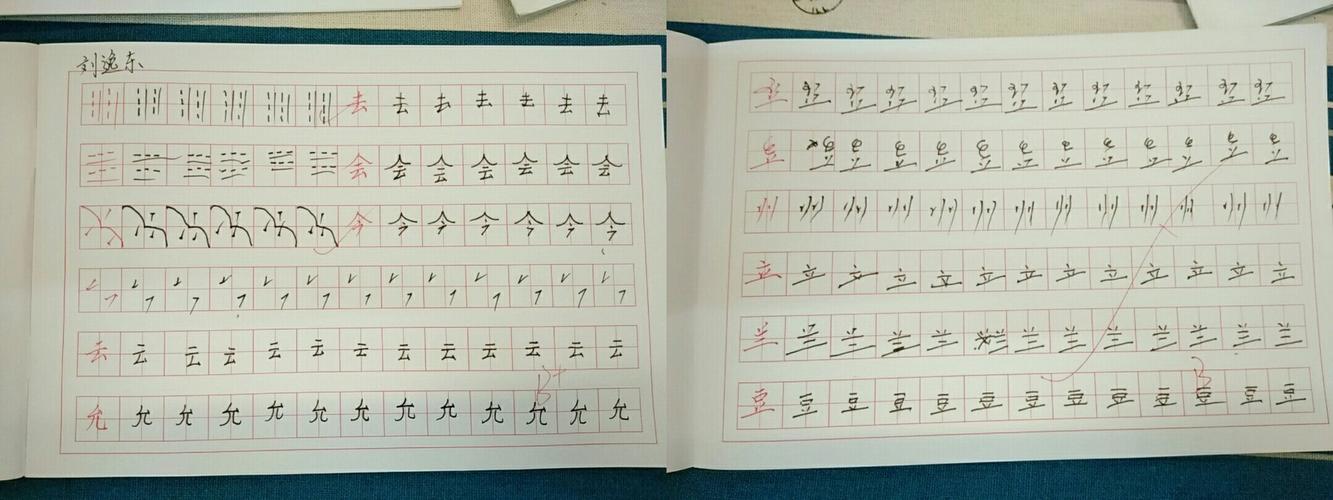 刘逸东
去去去去去去去
会会会会会会会
今今今今今今今
云云云云云云云云云云云云云
允允允允允允允允允允允允允
B+
州州州州州州州州州州州州州
立立立立立立立立立立立立立
兰兰兰兰兰兰兰兰兰兰兰兰兰
豆豆豆豆豆豆豆豆豆豆豆豆豆
B